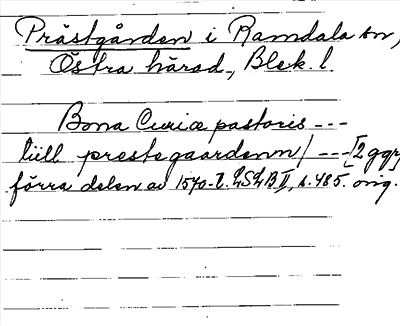 Prästgården i Ramdala sn,
Östra härad, Blek. l.
Bona Curiæ pastoris ---
till prestegaardenn / --- [2 ggr]
förra delen av 1570-t. LSLB II, s. 485. orig.